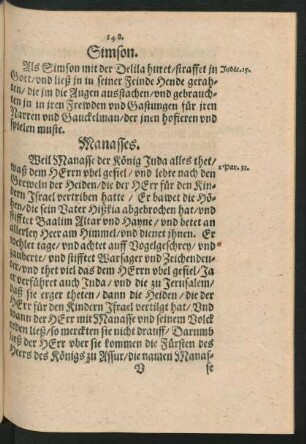 148.
Simson.
Als Simson mit der Delila huret/straffet jn
Gott/vnd ließ jn in seiner Feinde Hende gerah-
ten/die jm die Augen ausstachen/vnd gebrauch-
ten jn in jren Frewden vnd Gastungen für jren
Narren vnd Gauckelman/der jnen hofieren vnd
spielen muste.
Judic. 15.
Manasses.
Weil Manasse der König Juda alles thet/
waß dem HErrn vbel gefiel/vnd lebte nach den
Greweln der Heiden/die der HErr für den Kin-
dern Israel vertriben hatte/Er bawet die Hö-
hen/die sein Vater Hißkia abgebrochen hat/vnd
stifftet Baalim Altar vnd Hayne/vnd betet an
allerley Heer am Himmel/vnd dienet jhnen. Er
wehlet tage/vnd achtet auff Vogelgeschrey/vnd
zauberte/vnd stifftet Warsager vnd Zeichendeu-
ter/vnd thet viel das dem HErrn vbel gefiel/Ja
er verführet auch Juda/vnd die zu Jerusalem/
daß sie erger theten/dann die Heiden/die der
HErr für den Kindern Israel vertilgt hat/Vnd
wann der HErr mit Manasse vnd seinem Volck
reden ließ/so merckten sie nicht drauff/Darumb
ließ der HErr vber sie kommen die Fürsten des
Heers des Königs zu Assur/die namen Manas-
2 Par. 33.
V
se